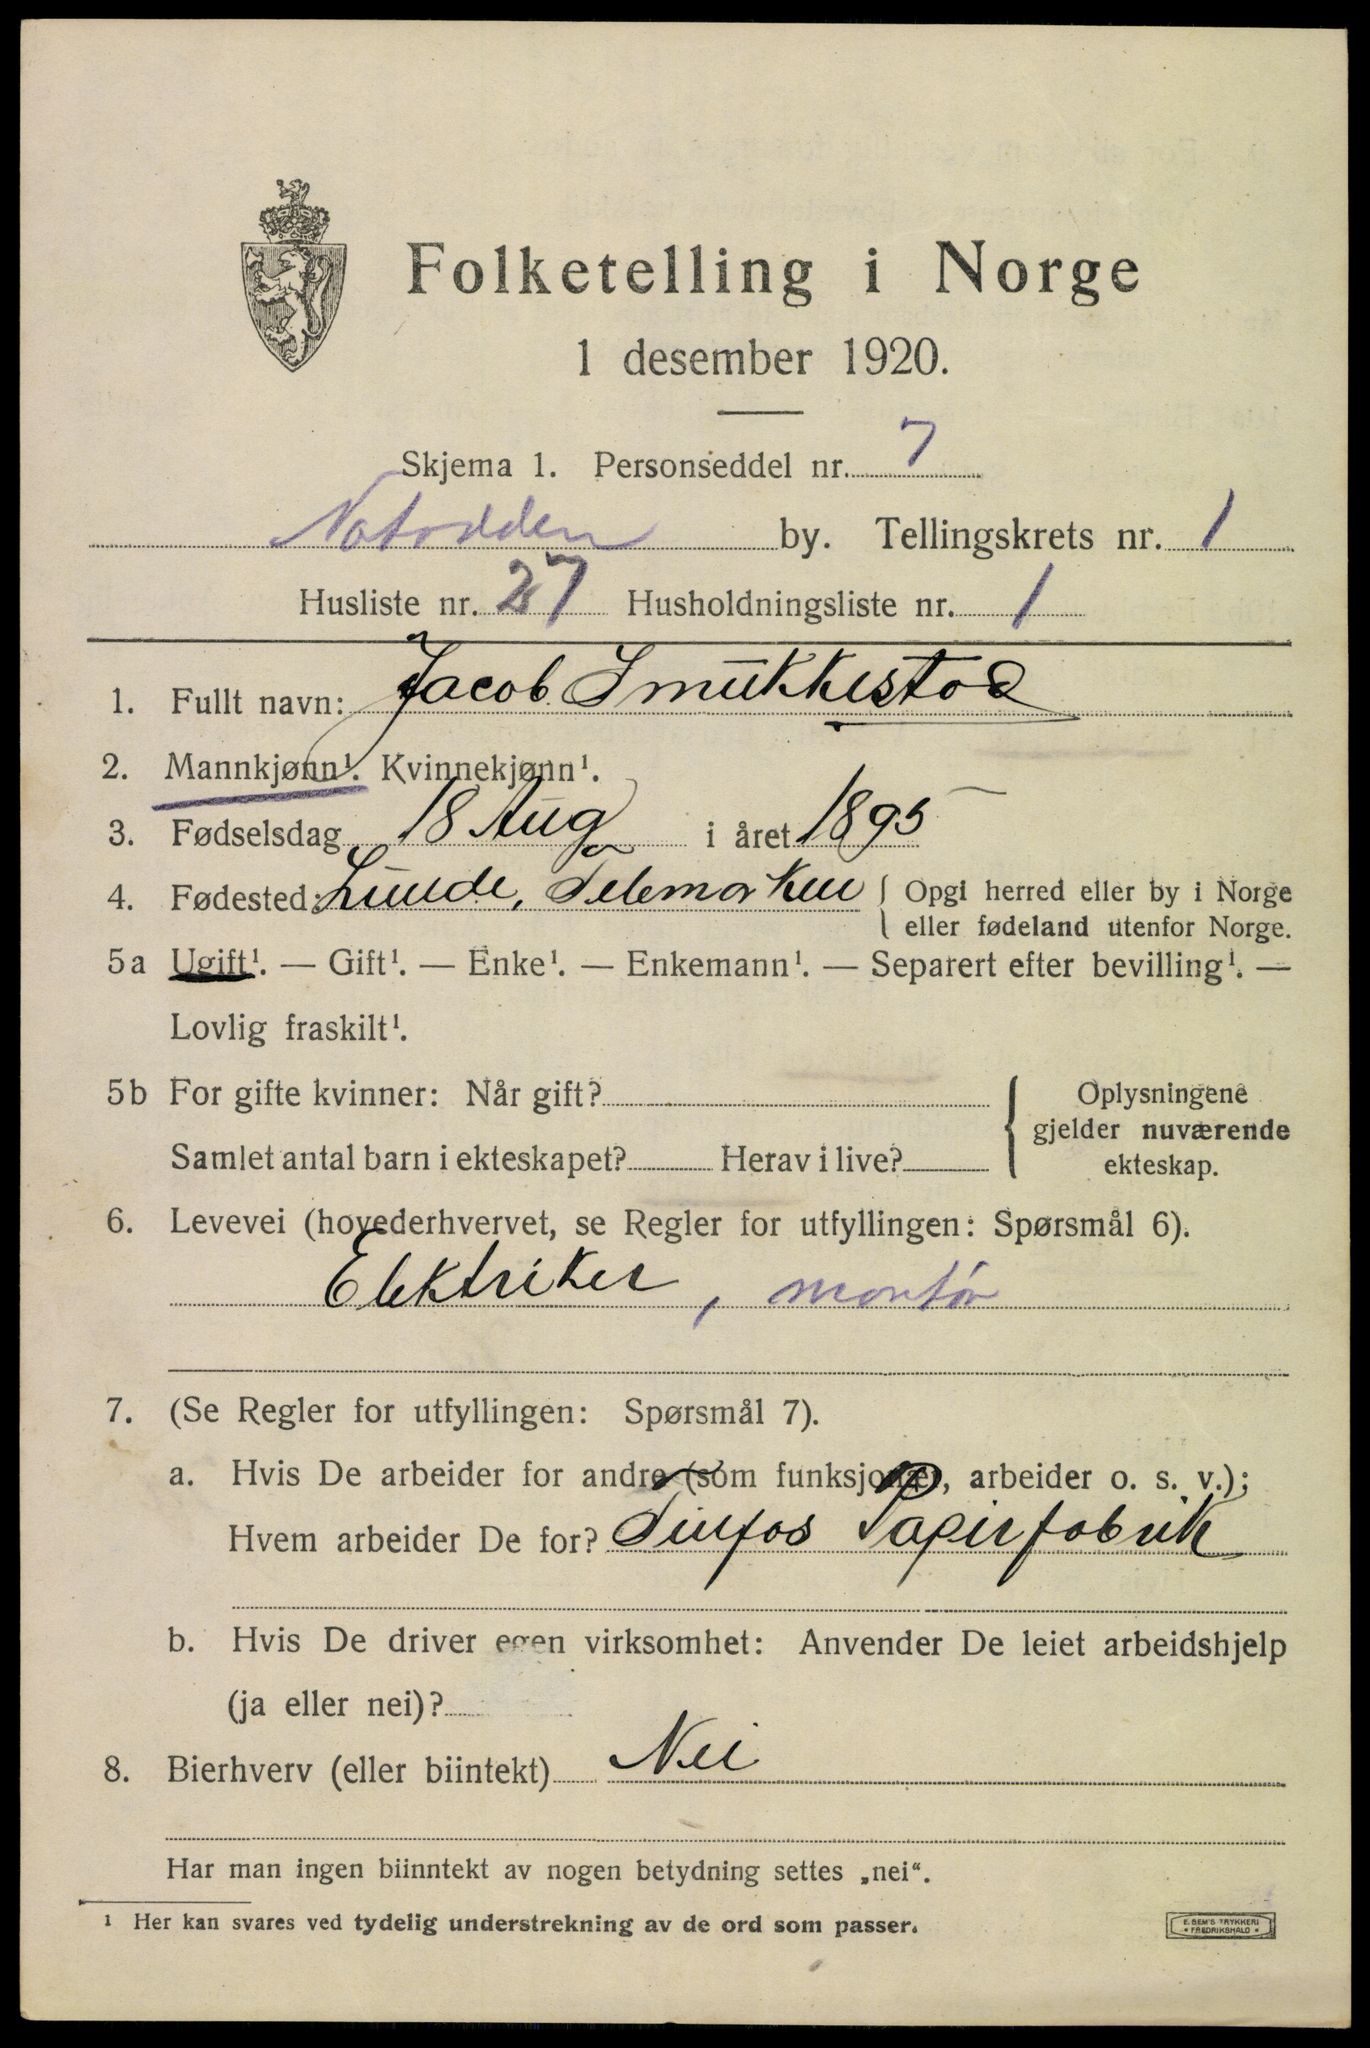 Folketelling i Norge
1 desember 1920.
Skjema 1. Personseddel nr. 7
Notodden by. Tellingskrets nr. 1
Husliste nr. 27 Husholdningsliste nr. 1
1. Fullt navn: Jacob Smukkestad
2. Mannkjønn¹. Kvinnekjønn¹.
3. Fødselsdag 18 Aug i året 1895
4. Fødested: Lunde, Telemarken { Opgi herred eller by i Norge
eller fødeland utenfor Norge.
5a Ugift¹. — Gift¹. — Enke¹. — Enkemann¹. — Separert efter bevilling¹. —
Lovlig fraskilt¹.
5b For gifte kvinner: Når gift?
Samlet antal barn i ekteskapet? Herav i live?
Oplysningene
gjelder nuværende
ekteskap.
6. Levevei (hovederhvervet, se Regler for utfyllingen: Spørsmål 6).
Elektriker, montør
7. (Se Regler for utfyllingen: Spørsmål 7).
a. Hvis De arbeider for andre (som funksjonær, arbeider o. s. v.);
Hvem arbeider De for? Tinfos Papirfabrik
b. Hvis De driver egen virksomhet: Anvender De leiet arbeidshjelp
(ja eller nei)?
8. Bierhverv (eller biintekt) Nei
Har man ingen biinntekt av nogen betydning settes „nei“.
¹ Her kan svares ved tydelig understrekning av de ord som passer.
E. SEM'S TRYKKERI
• FREDRIKSHALD •